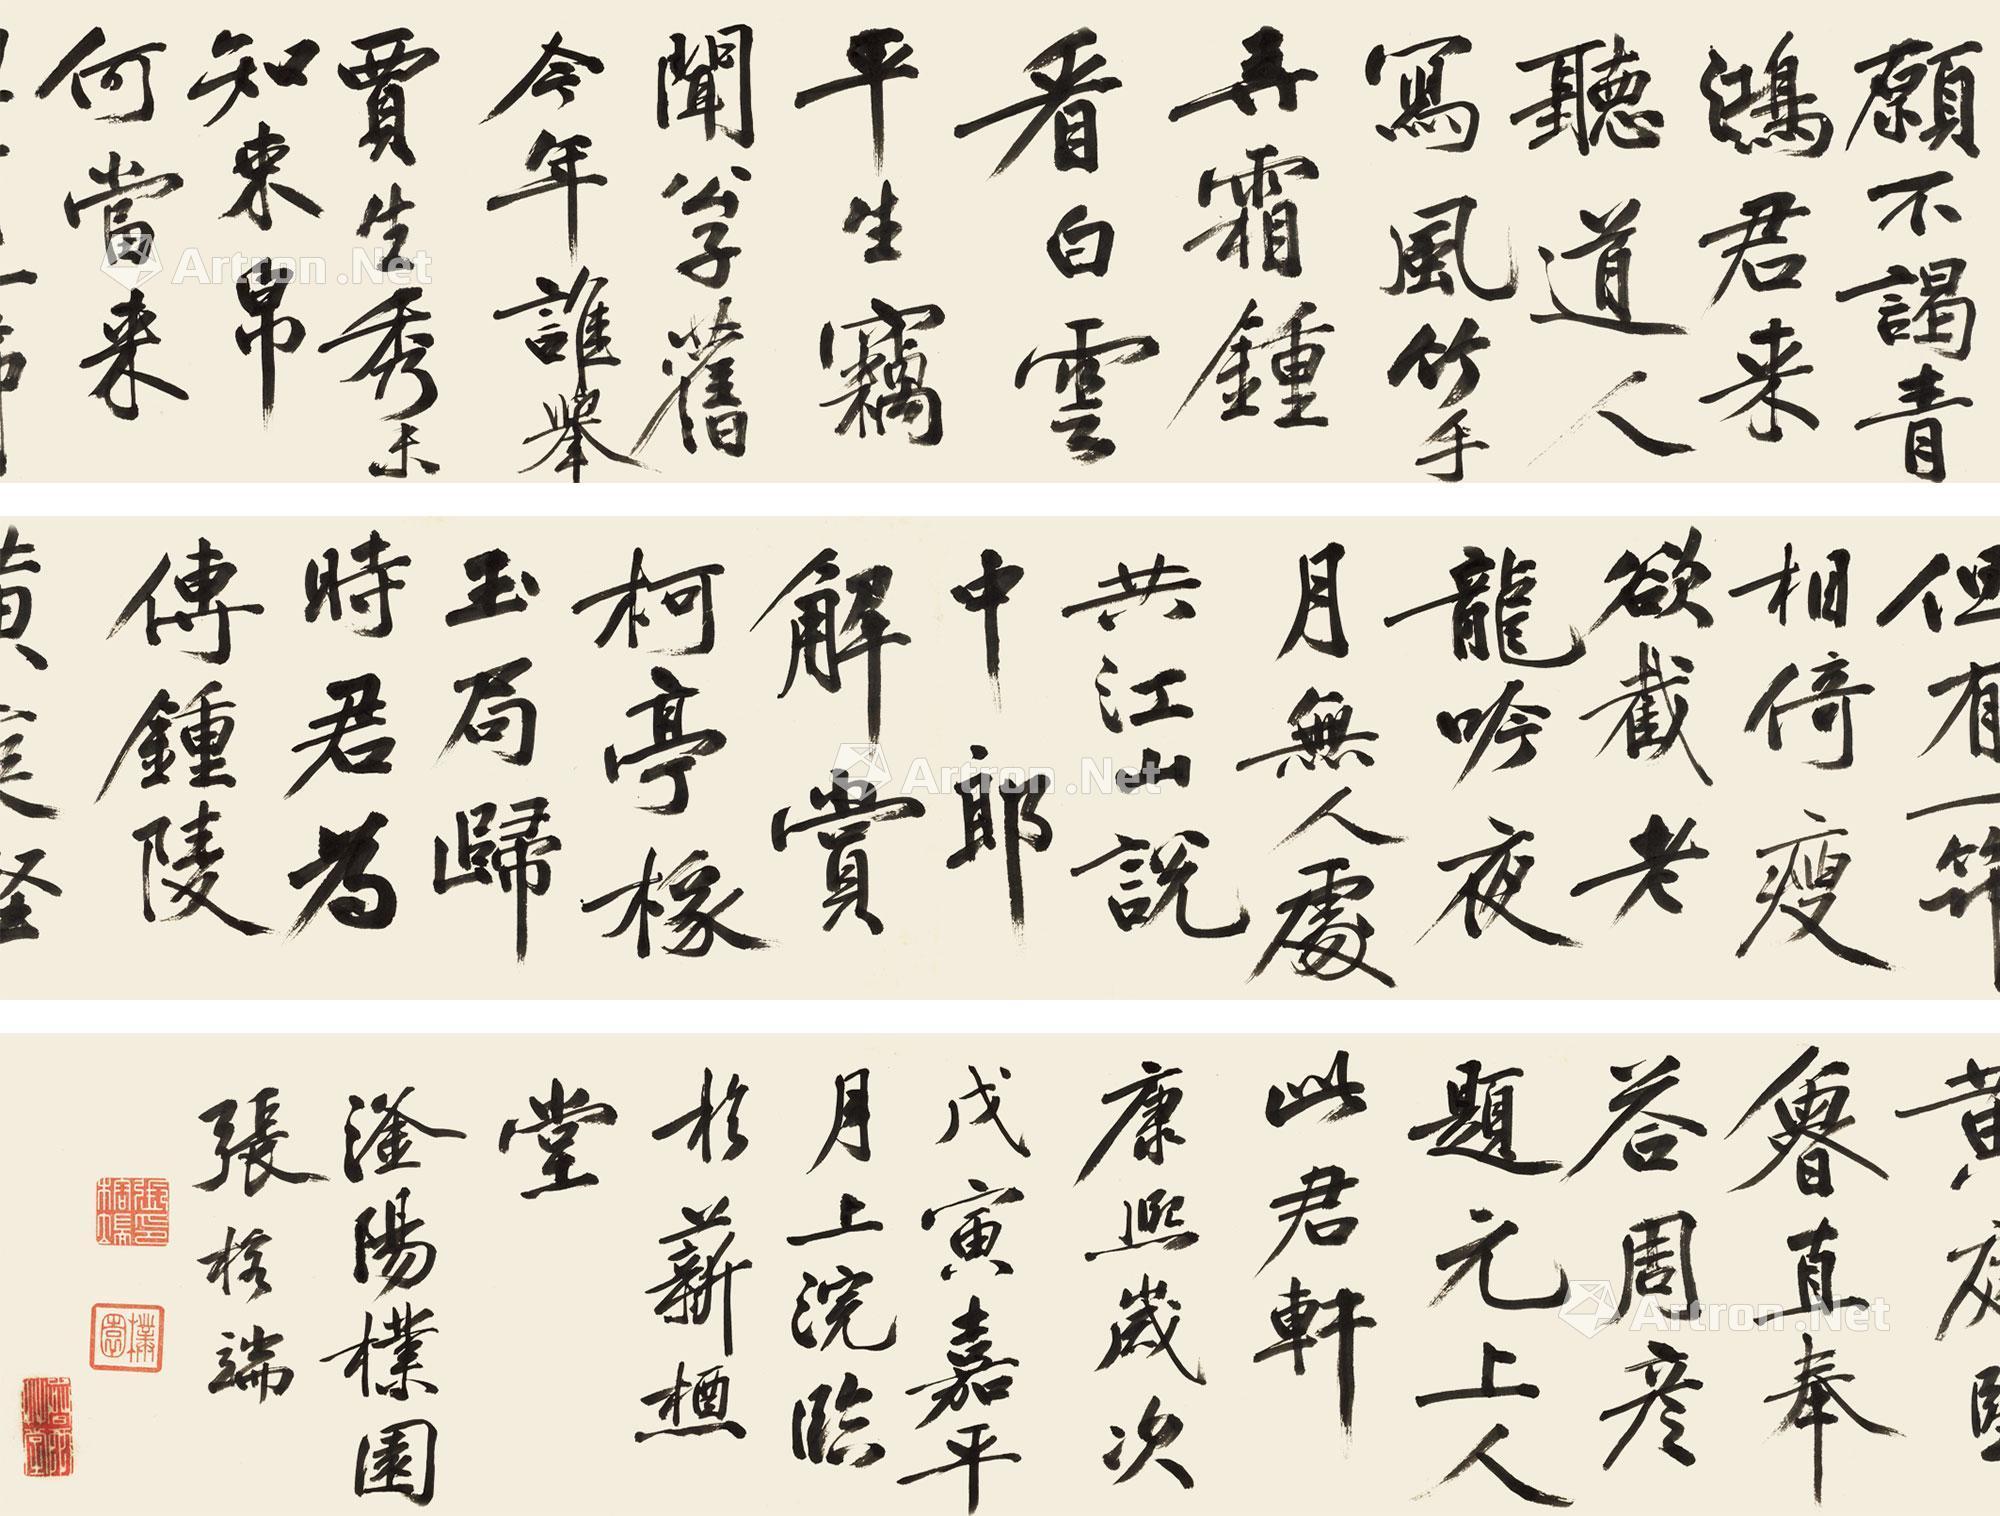 願不謁青
鴻君来
聽道人
寫風竹手
弄霜鍾
看白雲
平生竊
聞公子舊
今年誰舉
賈生秀未
知束帛
何當来
但有一
相倚瘦
欲截老
龍吟夜
月無人處
共江山說
中郎
解賞
柯亭椽
玉局歸
時君為
傳鍾陵
黃庭堅
魯直奉
荅周彦
題元上人
此君軒
康熙歲次
戊寅嘉平
月上浣臨
於薪槱
堂
滏陽樸園
張榕端
張印榕端
樸園
Artron.Net
Artron.Net
Artron.Net